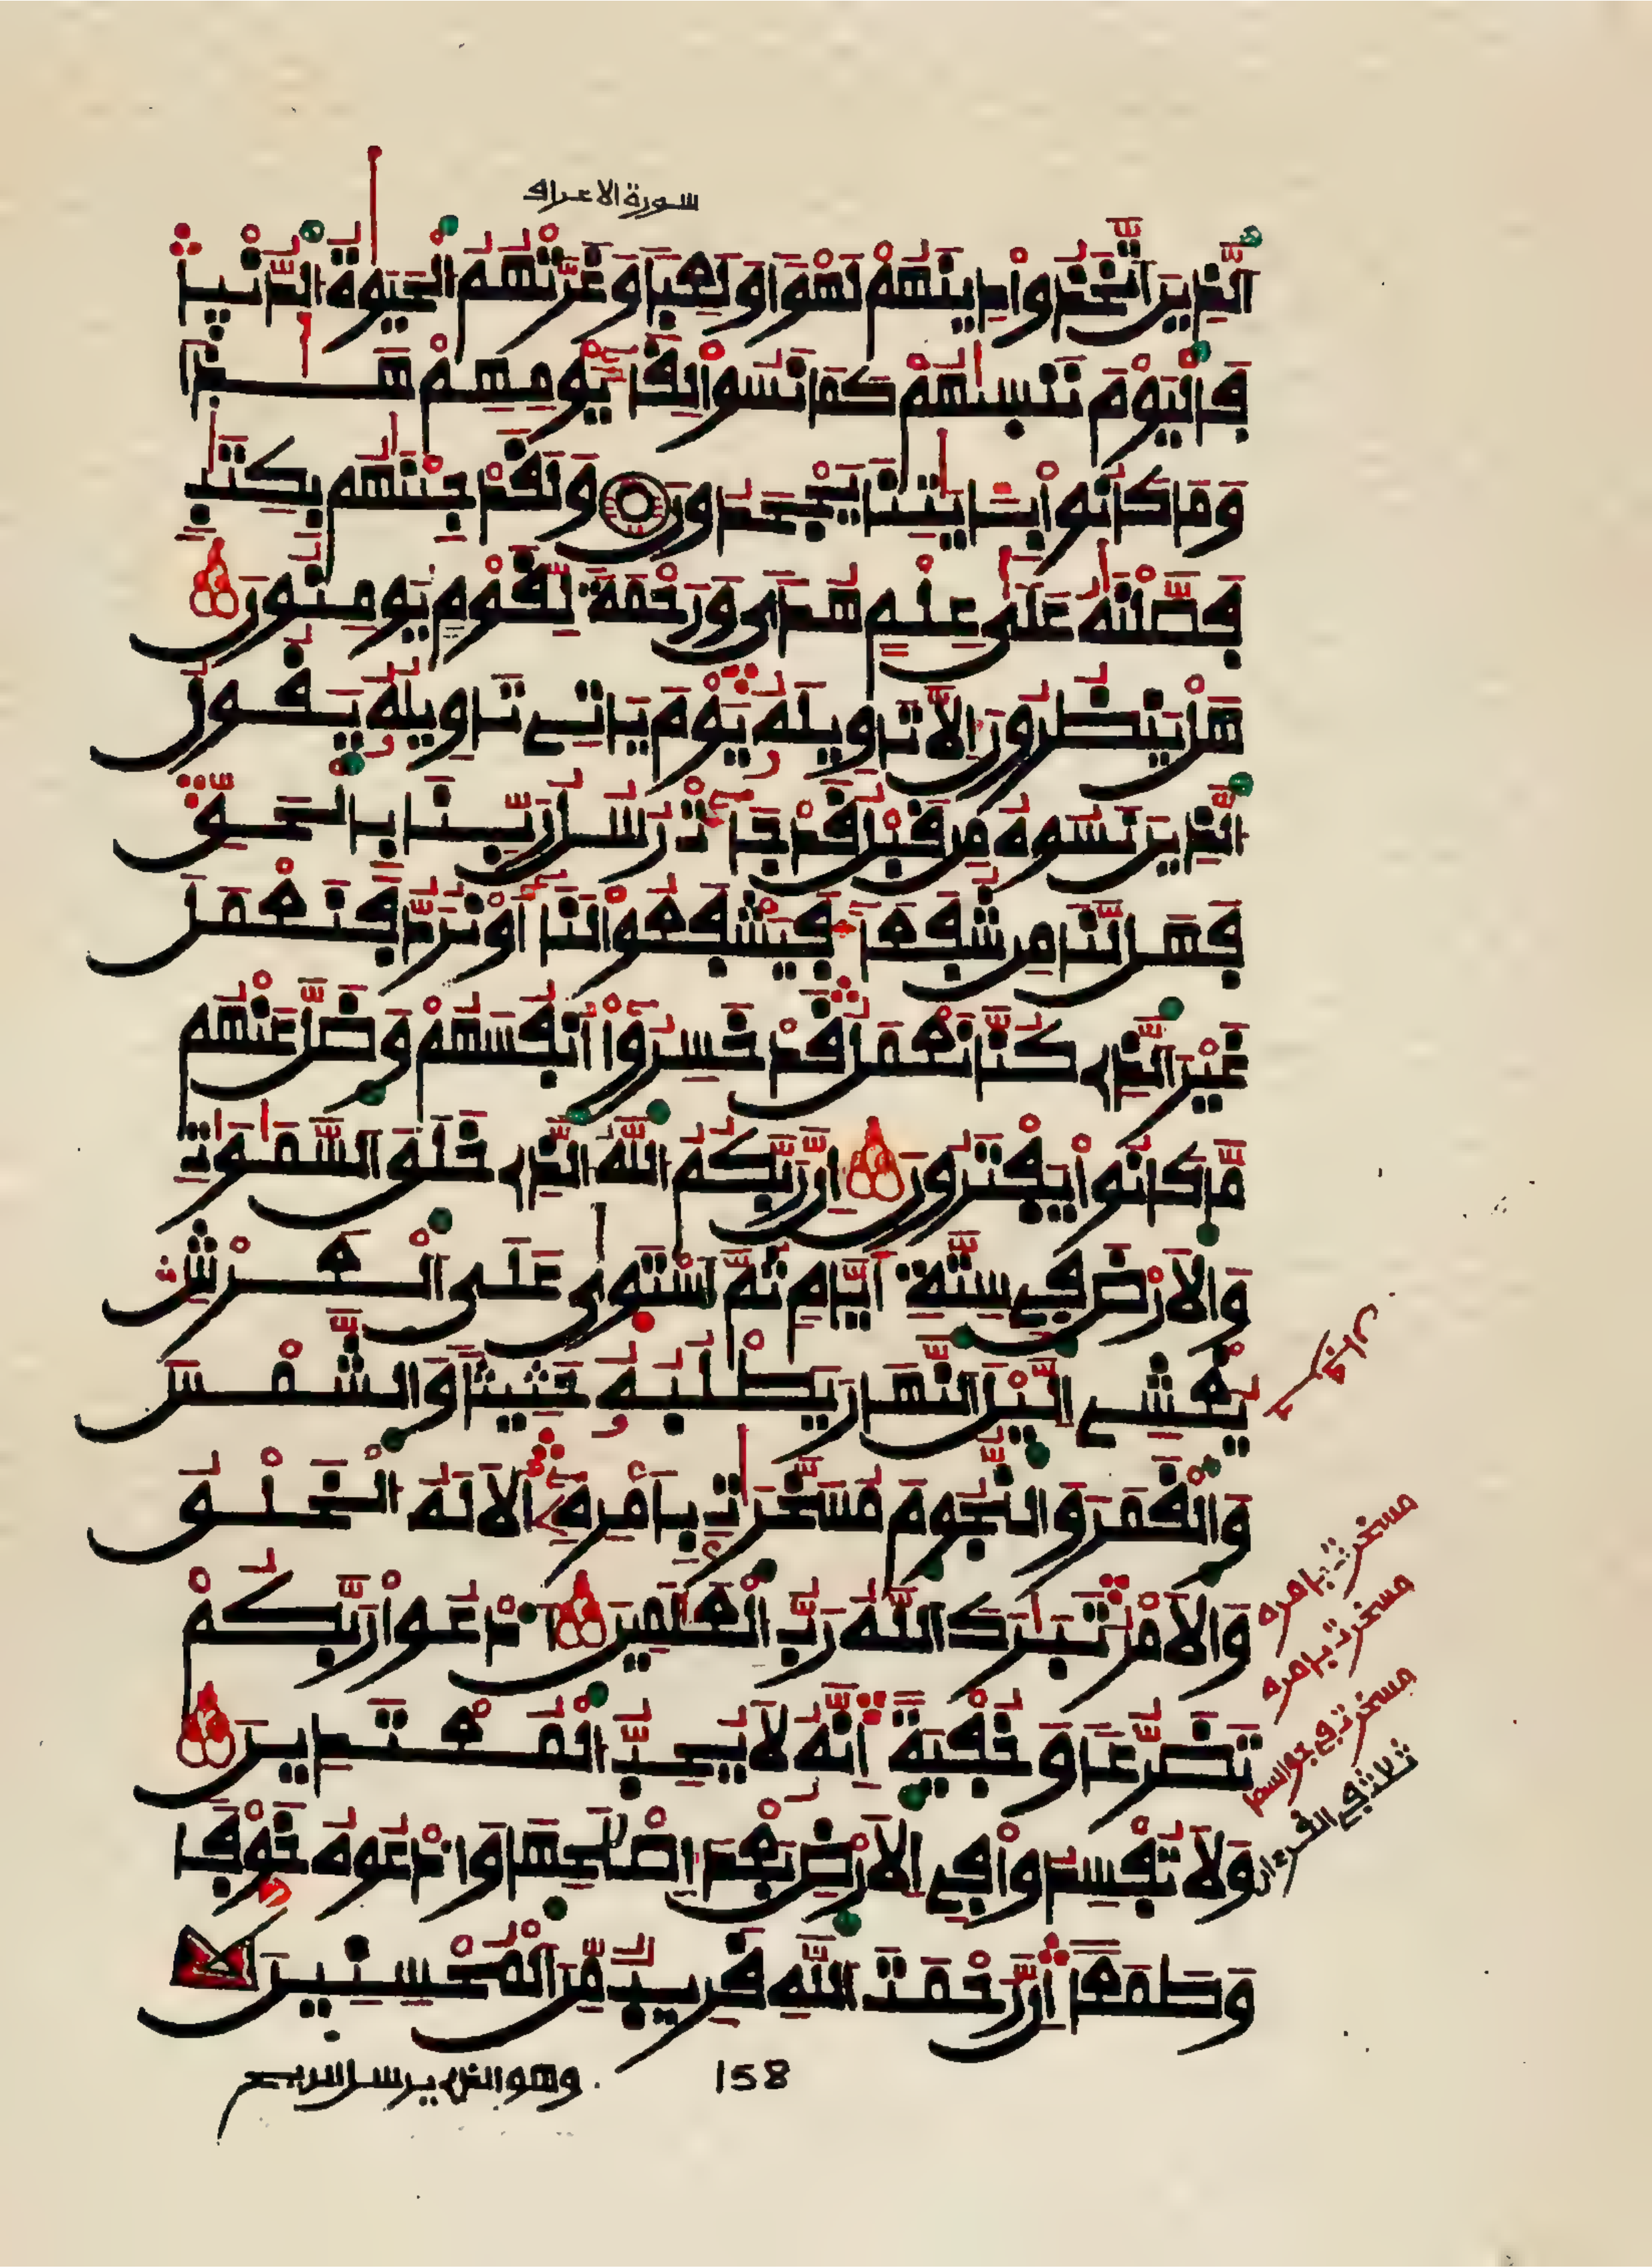 سورة الاعراف
الَّذِينَ اتَّخَذُواْ دِينَهُمْ لَهْوًا وَلَعِبًا وَغَرَّتْهُمُ الْحَيَوٰةُ الدُّنْيَا
فَالْيَوْمَ نَنسَيٰهُمْ كَمَا نَسُواْ لِقَآءَ يَوْمِهِمْ هَٰذَا
وَمَا كَانُواْ بِـَٔايَٰتِنَا يَجْحَدُونَ وَلَقَدْ جِئْنَٰهُم بِكِتَٰبٍ
فَصَّلْنَٰهُ عَلَىٰ عِلْمٍ هُدًى وَرَحْمَةً لِّقَوْمٍ يُومِنُونَ
هَلْ يَنظُرُونَ إِلَّا تَاوِيلَهُۥ يَوْمَ يَاتِے تَاوِيلُهُۥ يَقُولُ
الَّذِينَ نَسُوهُ مِن قَبْلُ قَدْ جَآءَتْ رُسُلُ رَبِّنَا بِالْحَقِّ
فَهَل لَّنَا مِن شُفَعَآءَ فَيَشْفَعُواْ لَنَآ أَوْ نُرَدُّ فَنَعْمَلَ
غَيْرَ الَّذِے كُنَّا نَعْمَلُ قَدْ خَسِرُوٓاْ أَنفُسَهُمْ وَضَلَّ عَنْهُم
مَّا كَانُواْ يَفْتَرُونَ إِنَّ رَبَّكُمُ اللَّهُ الَّذِے خَلَقَ السَّمَٰوَٰتِ
وَالْأَرْضَ فِے سِتَّةِ أَيَّامٍ ثُمَّ اسْتَوَىٰ عَلَى الْعَرْشِ
يُغْشِے الَّيْلَ النَّهَارَ يَطْلُبُهُۥ حَثِيثًا وَالشَّمْسَ
وَالْقَمَرَ وَالنُّجُومَ مُسَخَّرَٰتٍۭ بِأَمْرِهِۦٓ أَلَا لَهُ الْخَلْقُ
وَالْأَمْرُ تَبَٰرَكَ اللَّهُ رَبُّ الْعَٰلَمِينَ ادْعُواْ رَبَّكُمْ
تَضَرُّعًا وَخُفْيَةً إِنَّهُۥ لَا يُحِبُّ الْمُعْتَدِينَ
وَلَا تُفْسِدُواْ فِے الْأَرْضِ بَعْدَ إِصْلَٰحِهَا وَادْعُوهُ خَوْفًا
وَطَمَعًا إِنَّ رَحْمَتَ اللَّهِ قَرِيبٌ مِّنَ الْمُحْسِنِينَ
مسخرت بامره
مسخرت بامره
مسخرت في جو السما
ثلاث في القرءان
158
وهو الذے يرسل الريح